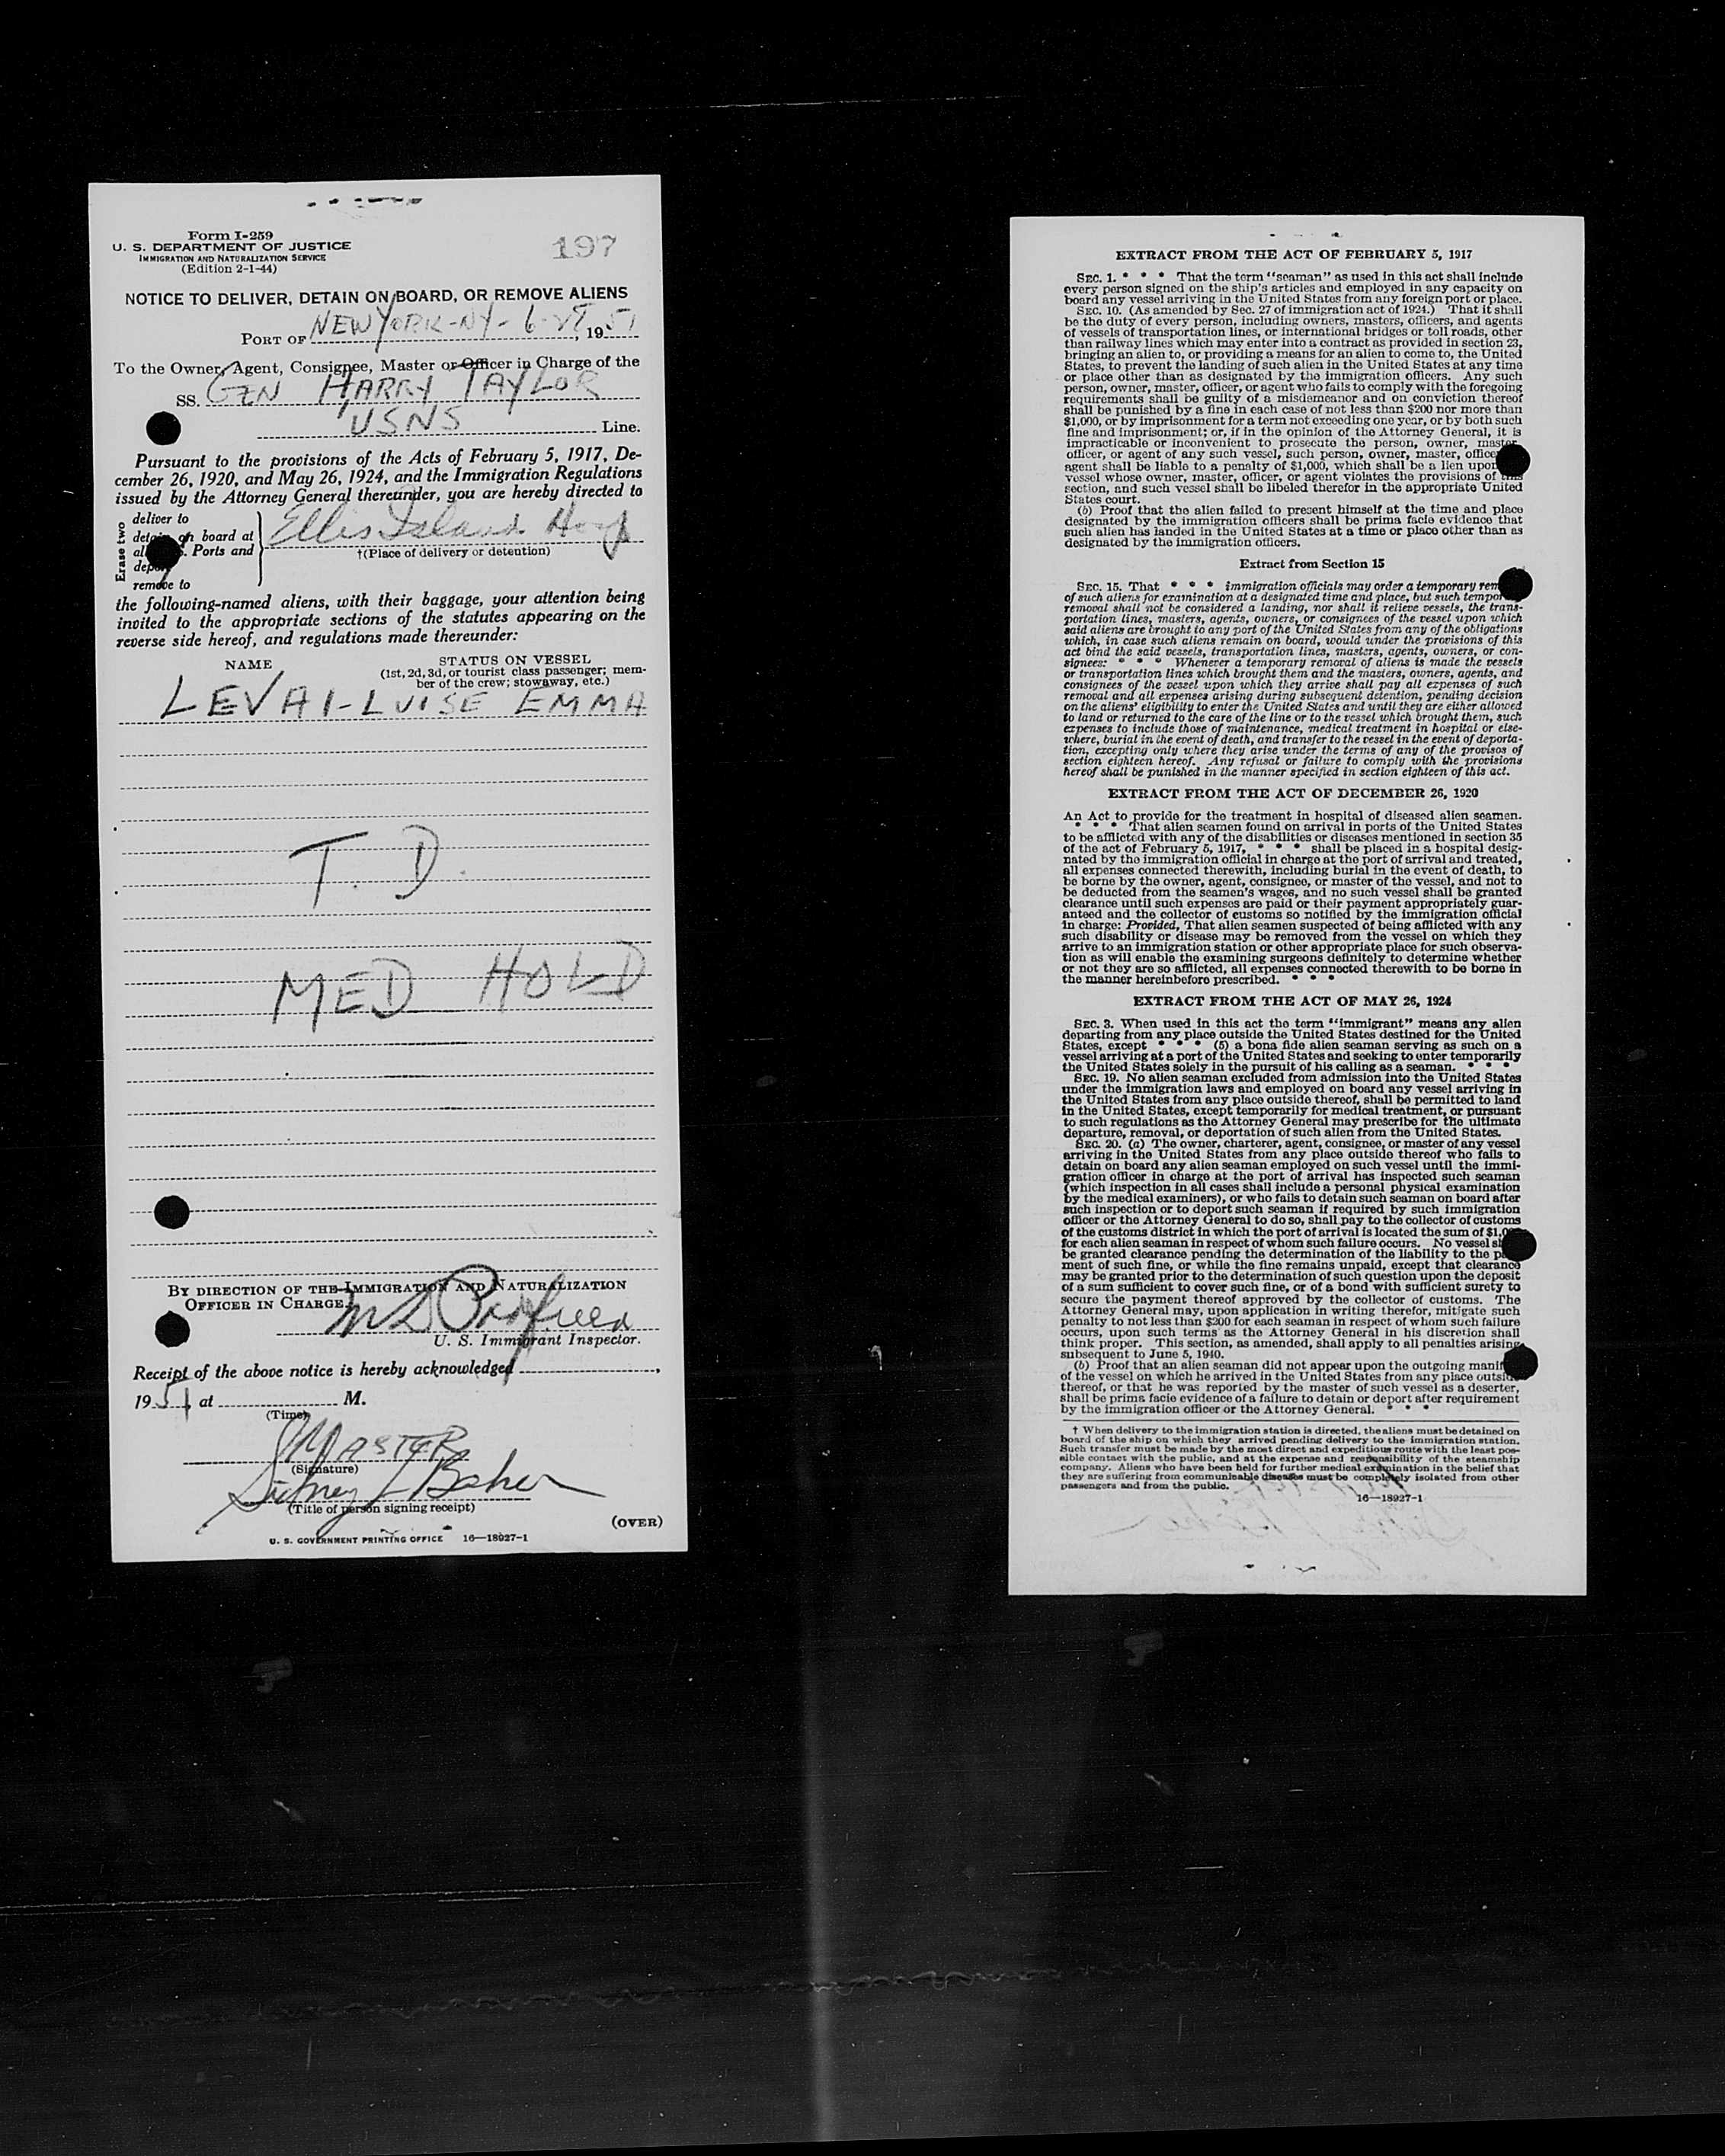 Form I-259
U. S. DEPARTMENT OF JUSTICE
IMMIGRATION AND NATURALIZATION SERVICE
(Edition 2-1-44)
197
NOTICE TO DELIVER, DETAIN ON BOARD, OR REMOVE ALIENS
PORT OF NEW YORK-NY-6-, 1951
To the Owner, Agent, Consignee, Master or Officer in Charge of the
SS. GEN HARRY TAYLOR
USNS Line.
Pursuant to the provisions of the Acts of February 5, 1917, De-
cember 26, 1920, and May 26, 1924, and the Immigration Regulations
issued by the Attorney General thereunder, you are hereby directed to
Erase two
deliver to
on board at
Ports and
remove to
Ellis Island
†(Place of delivery or detention)
the following-named aliens, with their baggage, your attention being
invited to the appropriate sections of the statutes appearing on the
reverse side hereof, and regulations made thereunder:
NAME
STATUS ON VESSEL
(1st, 2d, 3d, or tourist class passenger; mem-
ber of the crew; stowaway, etc.)
LEVAI-LUISE EMMA
T. D.
MED HOLD
BY DIRECTION OF THE IMMIGRATION AND NATURALIZATION
OFFICER IN CHARGE.
U. S. Immigrant Inspector.
Receipt of the above notice is hereby acknowledged ,
1951 at M.
(Time)
MASTER
(Signature)
Sidney L Baker
(Title of person signing receipt)
(OVER)
U. S. GOVERNMENT PRINTING OFFICE 16—18927-1
EXTRACT FROM THE ACT OF FEBRUARY 5, 1917
SEC. 1. * * * That the term "seaman" as used in this act shall include
every person signed on the ship's articles and employed in any capacity on
board any vessel arriving in the United States from any foreign port or place.
SEC. 10. (As amended by Sec. 27 of immigration act of 1924.) That it shall
be the duty of every person, including owners, masters, officers, and agents
of vessels of transportation lines, or international bridges or toll roads, other
than railway lines which may enter into a contract as provided in section 23,
bringing an alien to, or providing a means for an alien to come to, the United
States, to prevent the landing of such alien in the United States at any time
or place other than as designated by the immigration officers. Any such
person, owner, master, officer, or agent who fails to comply with the foregoing
requirements shall be guilty of a misdemeanor and on conviction thereof
shall be punished by a fine in each case of not less than $200 nor more than
$1,000, or by imprisonment for a term not exceeding one year, or by both such
fine and imprisonment; or, if in the opinion of the Attorney General, it is
impracticable or inconvenient to prosecute the person, owner, master
officer, or agent of any such vessel, such person, owner, master, officer
agent shall be liable to a penalty of $1,000, which shall be a lien upon
vessel whose owner, master, officer, or agent violates the provisions of this
section, and such vessel shall be libeled therefor in the appropriate United
States court.
(b) Proof that the alien failed to present himself at the time and place
designated by the immigration officers shall be prima facie evidence that
such alien has landed in the United States at a time or place other than as
designated by the immigration officers.
Extract from Section 15
SEC. 15. That * * * immigration officials may order a temporary rem
of such aliens for examination at a designated time and place, but such tempor
removal shall not be considered a landing, nor shall it relieve vessels, the trans-
portation lines, masters, agents, owners, or consignees of the vessel upon which
said aliens are brought to any part of the United States from any of the obligations
which, in case such aliens remain on board, would under the provisions of this
act bind the said vessels, transportation lines, masters, agents, owners, or con-
signees: * * * Whenever a temporary removal of aliens is made the vessels
or transportation lines which brought them and the masters, owners, agents, and
consignees of the vessel upon which they arrive shall pay all expenses of such
removal and all expenses arising during subsequent detention, pending decision
on the aliens' eligibility to enter the United States and until they are either allowed
to land or returned to the care of the line or to the vessel which brought them, such
expenses to include those of maintenance, medical treatment in hospital or else-
where, burial in the event of death, and transfer to the vessel in the event of deporta-
tion, excepting only where they arise under the terms of any of the provisos of
section eighteen hereof. Any refusal or failure to comply with the provisions
hereof shall be punished in the manner specified in section eighteen of this act.
EXTRACT FROM THE ACT OF DECEMBER 26, 1920
An Act to provide for the treatment in hospital of diseased alien seamen.
* * * That alien seamen found on arrival in ports of the United States
to be afflicted with any of the disabilities or diseases mentioned in section 35
of the act of February 5, 1917, * * * shall be placed in a hospital desig-
nated by the immigration official in charge at the port of arrival and treated,
all expenses connected therewith, including burial in the event of death, to
be borne by the owner, agent, consignee, or master of the vessel, and not to
be deducted from the seamen's wages, and no such vessel shall be granted
clearance until such expenses are paid or their payment appropriately guar-
anteed and the collector of customs so notified by the immigration official
in charge: Provided, That alien seamen suspected of being afflicted with any
such disability or disease may be removed from the vessel on which they
arrive to an immigration station or other appropriate place for such observa-
tion as will enable the examining surgeons definitely to determine whether
or not they are so afflicted, all expenses connected therewith to be borne in
the manner hereinbefore prescribed. * * *
EXTRACT FROM THE ACT OF MAY 26, 1924
SEC. 3. When used in this act the term "immigrant" means any alien
departing from any place outside the United States destined for the United
States, except * * * (5) a bona fide alien seaman serving as such on a
vessel arriving at a port of the United States and seeking to enter temporarily
the United States solely in the pursuit of his calling as a seaman. * * *
SEC. 19. No alien seaman excluded from admission into the United States
under the immigration laws and employed on board any vessel arriving in
the United States from any place outside thereof, shall be permitted to land
in the United States, except temporarily for medical treatment, or pursuant
to such regulations as the Attorney General may prescribe for the ultimate
departure, removal, or deportation of such alien from the United States.
SEC. 20. (a) The owner, charterer, agent, consignee, or master of any vessel
arriving in the United States from any place outside thereof who fails to
detain on board any alien seaman employed on such vessel until the immi-
gration officer in charge at the port of arrival has inspected such seaman
(which inspection in all cases shall include a personal physical examination
by the medical examiners), or who fails to detain such seaman on board after
such inspection or to deport such seaman if required by such immigration
officer or the Attorney General to do so, shall pay to the collector of customs
of the customs district in which the port of arrival is located the sum of $1,0
for each alien seaman in respect of whom such failure occurs. No vessel sh
be granted clearance pending the determination of the liability to the p
ment of such fine, or while the fine remains unpaid, except that clearance
may be granted prior to the determination of such question upon the deposit
of a sum sufficient to cover such fine, or of a bond with sufficient surety to
secure the payment thereof approved by the collector of customs. The
Attorney General may, upon application in writing therefor, mitigate such
penalty to not less than $200 for each seaman in respect of whom such failure
occurs, upon such terms as the Attorney General in his discretion shall
think proper. This section, as amended, shall apply to all penalties arising
subsequent to June 5, 1940.
(b) Proof that an alien seaman did not appear upon the outgoing manif
of the vessel on which he arrived in the United States from any place outside
thereof, or that he was reported by the master of such vessel as a deserter,
shall be prima facie evidence of a failure to detain or deport after requirement
by the immigration officer or the Attorney General. * * *
† When delivery to the immigration station is directed, the aliens must be detained on
board of the ship on which they arrived pending delivery to the immigration station.
Such transfer must be made by the most direct and expeditious route with the least pos-
sible contact with the public, and at the expense and responsibility of the steamship
company. Aliens who have been held for further medical examination in the belief that
they are suffering from communicable diseases must be completely isolated from other
passengers and from the public.
16—18927-1